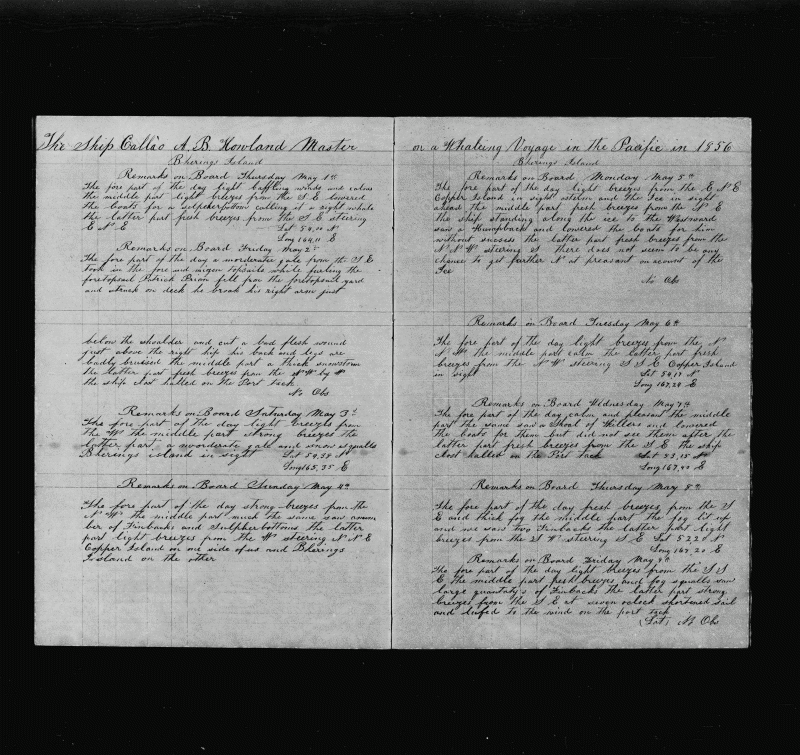 The Ship Callao A. B. Howland Master
Bherings Island
Remarks on Board Thursday May 1st
The fore part of the day light baffling winds and calms
the middle part light breezes from the S E lowered
the boats for a sulpherbottom calling it a right whale
the latter part fresh breezes from the S E steering
E N E Lat 54,10 N
Long 164,11 E
Remarks on Board Friday May 2d
The fore part of the day a morderate gale from the S E
took in the fore and mizen topsails while furling the
foretopsail Patrick Brion fell from the foretopsail yard
and struck on deck he broak his right arm just
below the shoulder and cut a bad flesh wound
just above the right hip his back and legs are
badly bruised the middle part a thick snowstorm
the latter part fresh breezes from the N W by W
the ship clost halled on the Port tack
No Obs
Remarks on Board Saturday May 3d
The fore part of the day light breezes from
the W the middle part strong breezes the
latter part a morderate gale and snow squalls
Bherings island in sight Lat 54,38 N
Long 165,35 E
Remarks on Board Sunday May 4th
The fore part of the day strong breezes from the
N W the middle part much the same saw anum
ber of Finbacks and Sulpherbottoms the latter
part light breezes from the W steering N N E
Copper Island on one side of us and Bherings
Island on the other
on a Whaleing Voyage in the Pacific in 1856
Bherings Island
Remarks on Board Monday May 5th
The fore part of the day light breezes from the E N E
Copper Island in sight astern and the Ice in sight
ahead the middle part fresh breezes from the N E
the ship standing along the ice to the Westward
saw a Humpback and lowered the boats for him
without success the latter part fresh breezes from the
N N W steering S there does not seem to be any
chance to get further N at preasant on acount of the
Ice
No Obs
Remarks on Board Tuesday May 6th
The fore part of the day light breezes from the N
N W the middle part calm the latter part fresh
breezes from the N W steering S S E Copper Island
in sight Lat 54,17 N
Long 167,28 E
Remarks on Board Wednesday May 7th
The fore part of the day calm and pleasant the middle
part the same saw a Shoal of Killers and lowered
the boats for them but did not see them after the
latter part fresh breezes from the S E the ship
clost halled on the Port tack Lat 53,15 N
Long 167,40 E
Remarks on Board Thursday May 8th
The fore part of the day fresh breezes from the S
E and thick fog the middle part the fog lit up
and we saw two Finbacks the latter part light
breezes from the S W steering S E Lat 52,20 N
Long 167,20 E
Remarks on Board Friday May 9th
The fore part of the day light breezes from the S S
E the middle part fresh breezes and fog squalls saw
large quantatys of Finbacks the latter part strong
breezes from the S E at seven oclock shortened sail
and lufed to the wind on the port tack
Lat, No Obs